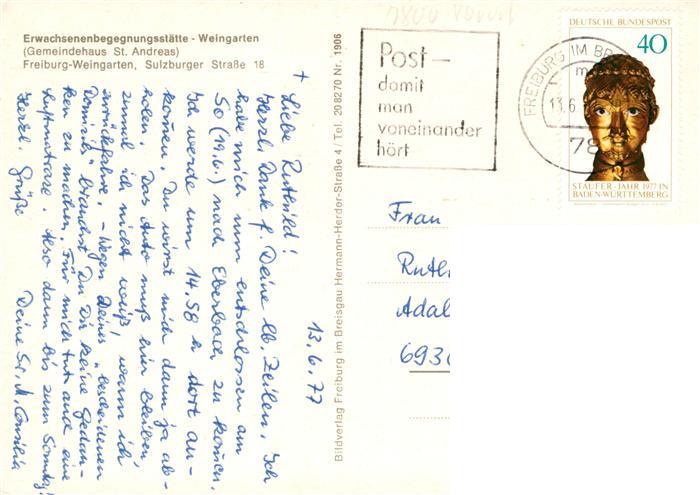 Erwachsenenbegegnungsstätte - Weingarten
(Gemeindehaus St. Andreas)
Freiburg-Weingarten, Sulzburger Straße 18
13.6.77
+ Liebe Ruthild!
Herzl. Dank f. Deine lb. Zeilen. Ich
habe mich nun entschlossen am
So (19.6.) nach Eberbach zu kommen.
Ich werde um 14.58 h dort an-
kommen. Du wirst mich dann ja ab-
holen. Das Auto muß hier bleiben,
zumal ich nicht weiß, wann ich
zurückkehre. - Wegen Deines "bescheidenen
Domizils" brauchst Du Dir keine Gedan-
ken zu machen. Für mich tut's auch eine
Luftmatraze. Also dann bis zum Sonntag!
Herzl. Grüße Deine Sr. M.
Bildverlag Freiburg im Breisgau Hermann-Herder-Straße 4 / Tel. 208270 Nr. 1906
Post-
damit
man
voneinander
hört
FREIBURG IM BR
m
13.6.
78
DEUTSCHE BUNDESPOST
40
STAUFER-JAHR 1977 IN
BADEN-WÜRTTEMBERG
Frau
Ruth
Adal
693